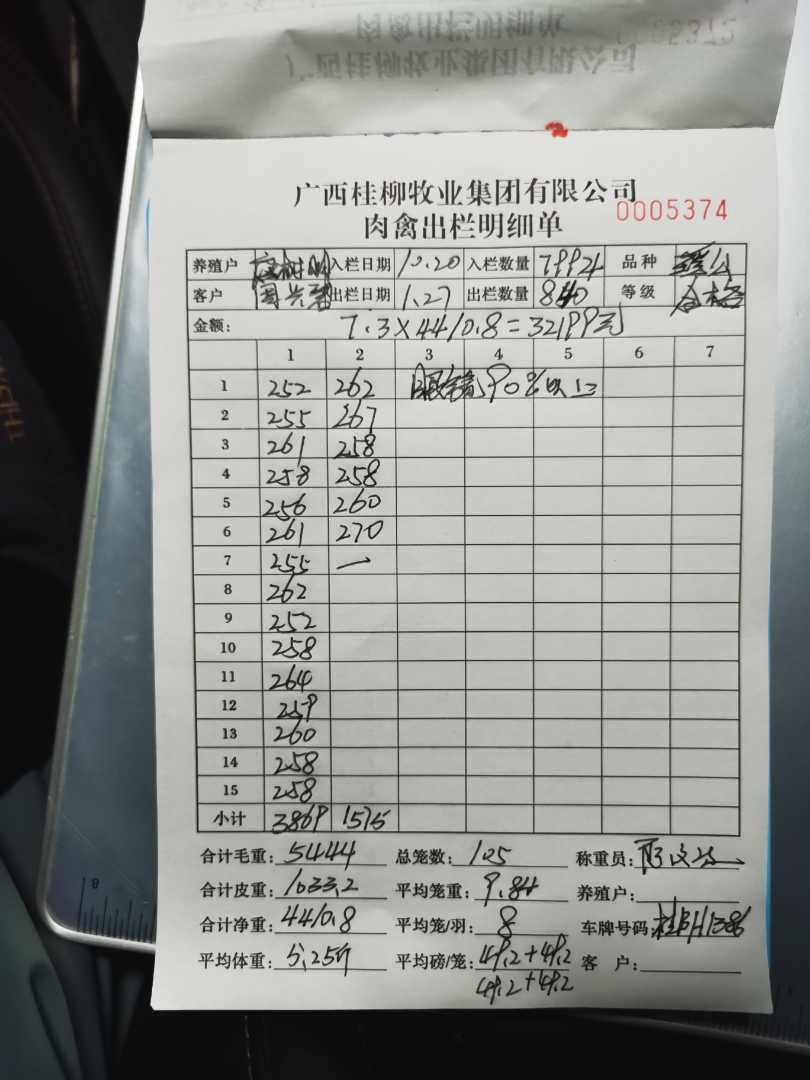 广西桂柳牧业集团有限公司
肉禽出栏明细单
0005374
养殖户 入栏日期 10.20 入栏数量 品种
客户 出栏日期 1.27 出栏数量 840 等级 合格
金额: 7.3×4410.8=32199元
1 2 3 4 5 6 7
1 252 262 90%以上
2 255 267
3 261 258
4 258 258
5 256 260
6 261 270
7 255 一
8 262
9 252
10 258
11 264
12 259
13 260
14 258
15 258
小计 3869 1575
合计毛重: 5444 总笼数: 105 称重员:
合计皮重: 1033.2 平均笼重: 9.84 养殖户:
合计净重: 4410.8 平均笼/羽: 8 车牌号码:
平均体重: 5.25斤 平均磅/笼: 49.2+49.2 客 户:
49.2+49.2